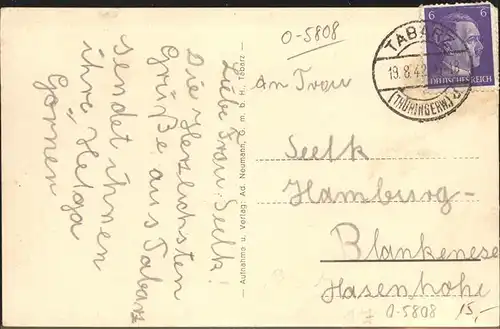 Liebe Frau Seelk!
Die Herzlichsten
Grüße aus Tabarz
sendet ihnen
ihre „Helga
Gonnen
— Aufnahme u. Verlag: Ad. Neumann, G. m. b. H., Tabarz —
0-5808
an Frau
Seelk
Hamburg-
Blankenese
Hasenhöhe
0-5808 15,-
6 6
DEUTSCHES REICH
TABARZ
19.8.42
(THÜRINGERW.)